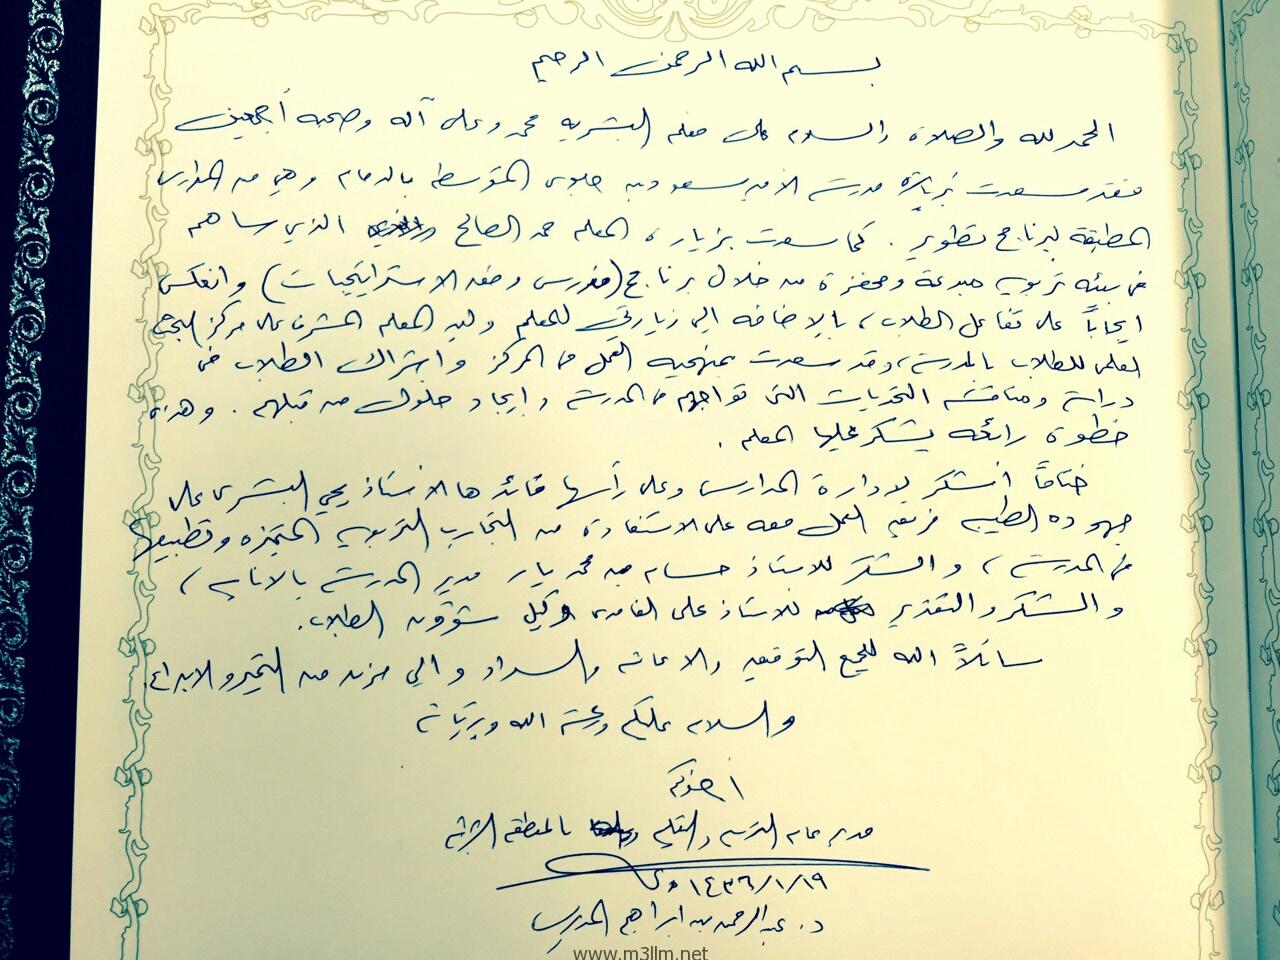 بسم الله الرحمن الرحيم
الحمد لله والصلاة والسلام على معلم البشرية محمد وعلى آله وصحبه أجمعين
فقد سعدت بزيارة مدرسة الأمير سعود بن جلوي المتوسطة بالدمام وهي من المدارس
المطبقة لبرنامج تطوير . كما سعدت بزيارة المعلم محمد الصالح الذي ساهم
في بيئة تربوية مبدعة ومحفزة من خلال برنامج (مغرس وحقه الاستراتيجيات) وانعكس
ايجاباً على تفاعل الطلاب، بالإضافة إلى زيارتي للمعلم وليد المعلم المشرف على مركز البحث
العلمي للطلاب بالمدرسة، وقد سعدت بمنهجية العمل في المركز واشتراك الطلاب في
دراسة ومناقشة التحديات التي تواجههم في المدرسة وإيجاد حلول من قبلهم . وهذه
خطوة رائعة يشكر عليها المعلم .
ختاماً أشكر إدارة المدارس وعلى رأسها قائدها الأستاذ يحيى البشري على
جهوده الطيبة فريقه العمل معه على الاستفادة من التجارب التربوية المتميزة وتطبيقها
في المدرسة، والشكر للاستاذ حسام محمد يار مدير المدرسة بالانابة،
والشكر والتقدير للاستاذ علي الغامدي وكيل شؤون الطلاب.
سائلاً الله للجميع التوفيق والاعانة والسداد والى مزيد من التميز والابداع.
والسلام عليكم ورحمة الله وبركاته
أخوكم
مدير عام التربية والتعليم بالمنطقة الشرقية
١٤٣٦/١/١٩ هـ
د. عبدالرحمن بن ابراهيم المديرس
www.m3llm.net